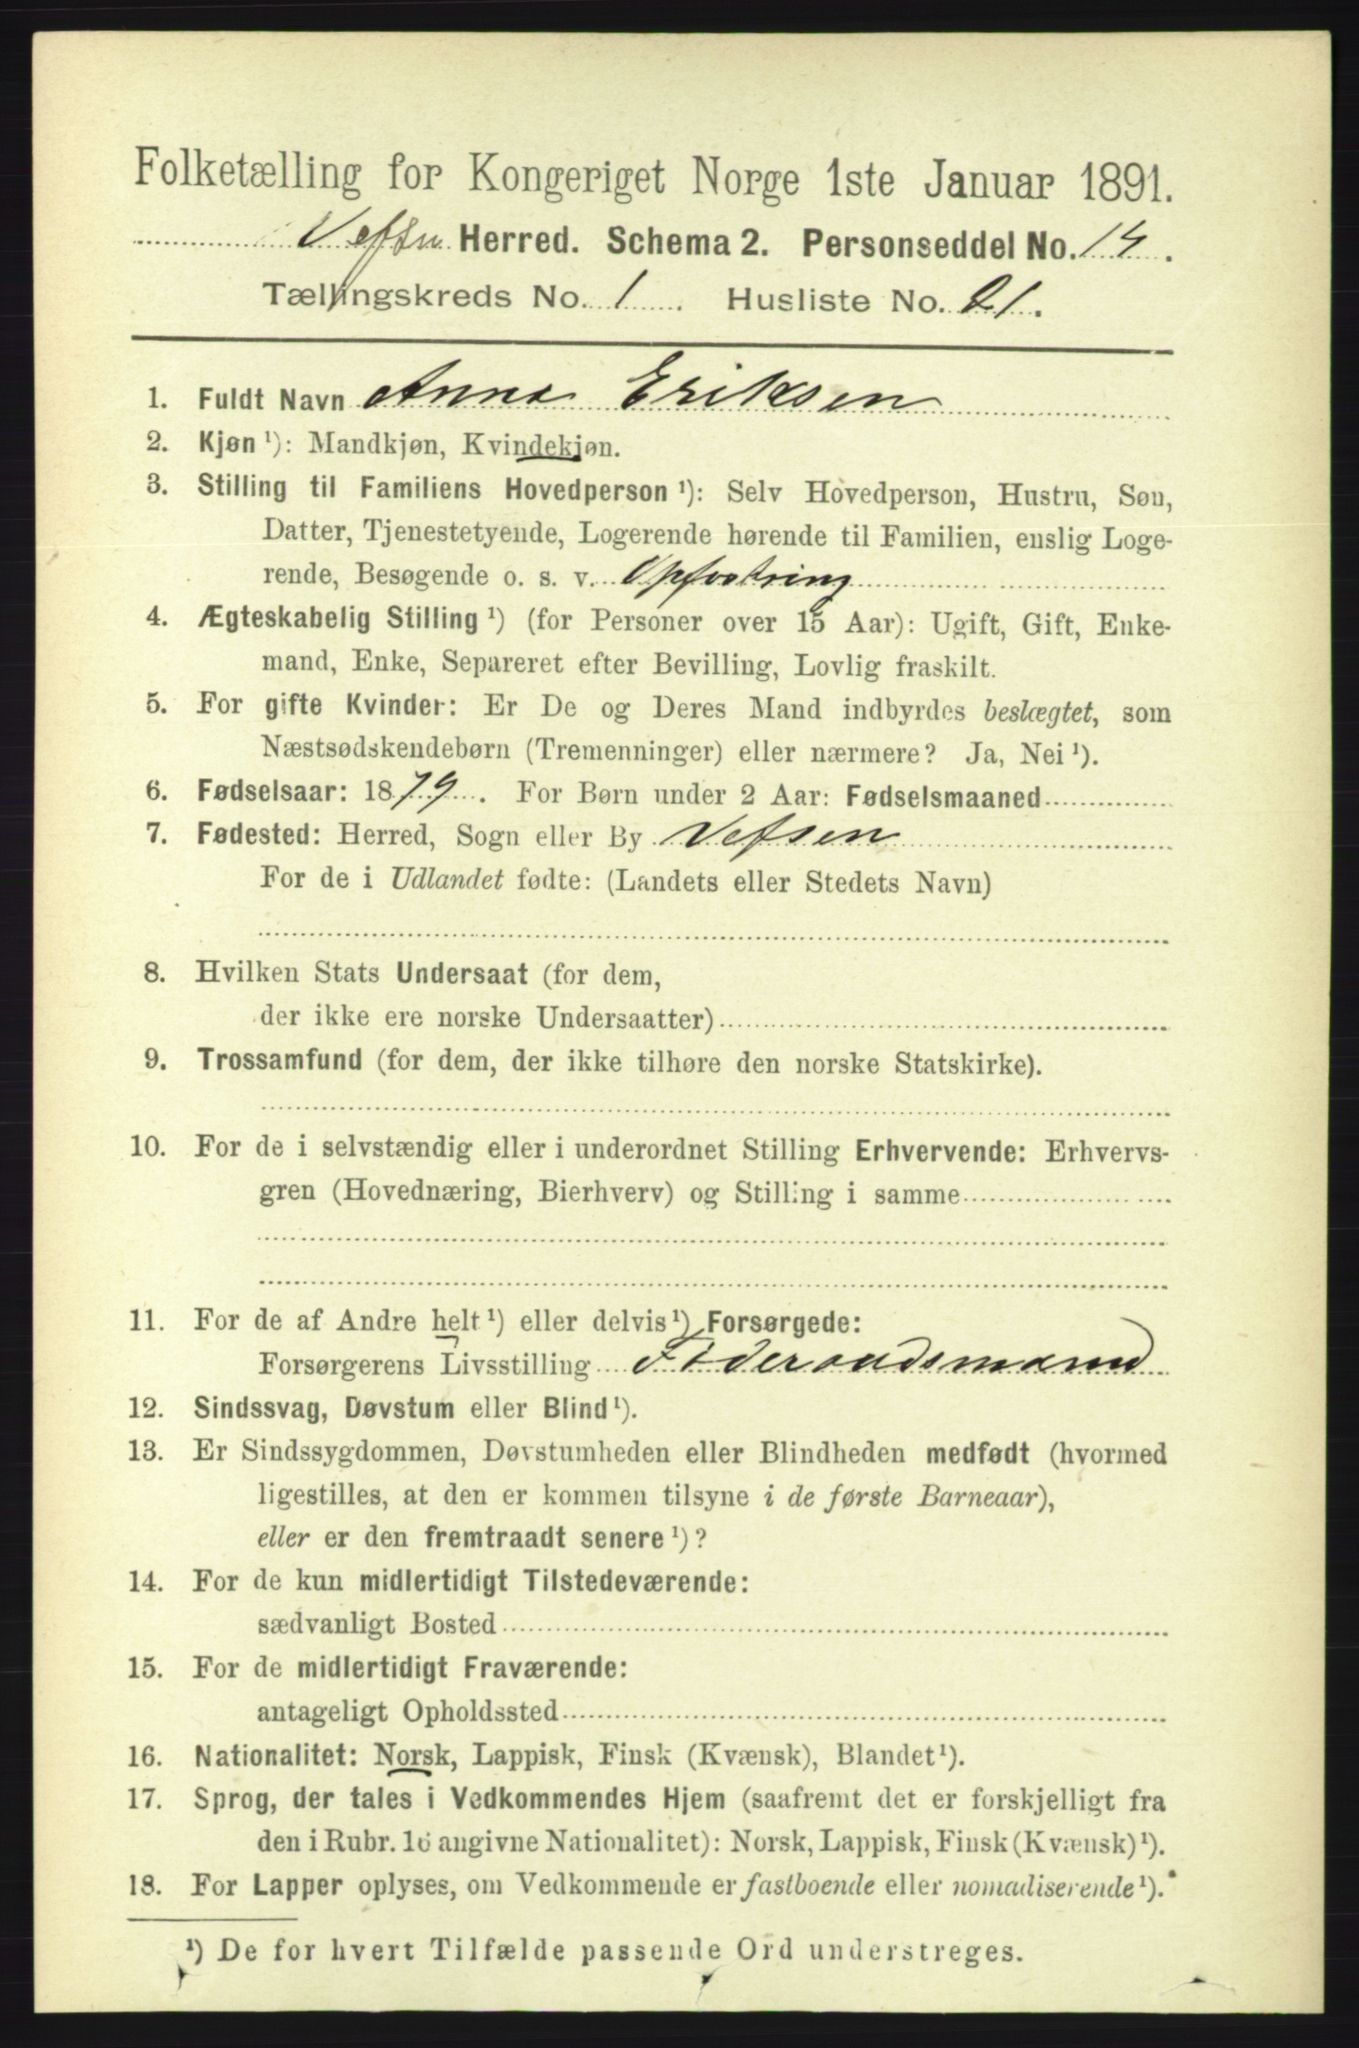 Folketælling for Kongeriget Norge 1ste Januar 1891.
Vefsn Herred. Schema 2. Personseddel No. 14.
Tællingskreds No. 1. Husliste No. 21.
1. Fuldt Navn Anna Eriksen
2. Kjøn ¹): Mandkjøn, Kvindekjøn.
3. Stilling til Familiens Hovedperson ¹): Selv Hovedperson, Hustru, Søn,
Datter, Tjenestetyende, Logerende hørende til Familien, enslig Loge-
rende, Besøgende o. s. v. Opfostring
4. Ægteskabelig Stilling ¹) (for Personer over 15 Aar): Ugift, Gift, Enke-
mand, Enke, Separeret efter Bevilling, Lovlig fraskilt.
5. For gifte Kvinder: Er De og Deres Mand indbyrdes beslægtet, som
Næstsødskendebørn (Tremenninger) eller nærmere? Ja, Nei ¹).
6. Fødselsaar: 1879. For Børn under 2 Aar: Fødselsmaaned
7. Fødested: Herred, Sogn eller By Vefsen
For de i Udlandet fødte: (Landets eller Stedets Navn)
8. Hvilken Stats Undersaat (for dem,
der ikke ere norske Undersaatter)
9. Trossamfund (for dem, der ikke tilhøre den norske Statskirke).
10. For de i selvstændig eller i underordnet Stilling Erhvervende: Erhvervs-
gren (Hovednæring, Bierhverv) og Stilling i samme
11. For de af Andre helt ¹) eller delvis ¹) Forsørgede:
Forsørgerens Livsstilling Føderaadsmand
12. Sindssvag, Døvstum eller Blind ¹).
13. Er Sindssygdommen, Døvstumheden eller Blindheden medfødt (hvormed
ligestilles, at den er kommen tilsyne i de første Barneaar),
eller er den fremtraadt senere ¹)?
14. For de kun midlertidigt Tilstedeværende:
sædvanligt Bosted
15. For de midlertidigt Fraværende:
antageligt Opholdssted
16. Nationalitet: Norsk, Lappisk, Finsk (Kvænsk), Blandet ¹).
17. Sprog, der tales i Vedkommendes Hjem (saafremt det er forskjelligt fra
den i Rubr. 16 angivne Nationalitet): Norsk, Lappisk, Finsk (Kvænsk) ¹).
18. For Lapper oplyses, om Vedkommende er fastboende eller nomadiserende ¹).
¹) De for hvert Tilfælde passende Ord understreges.